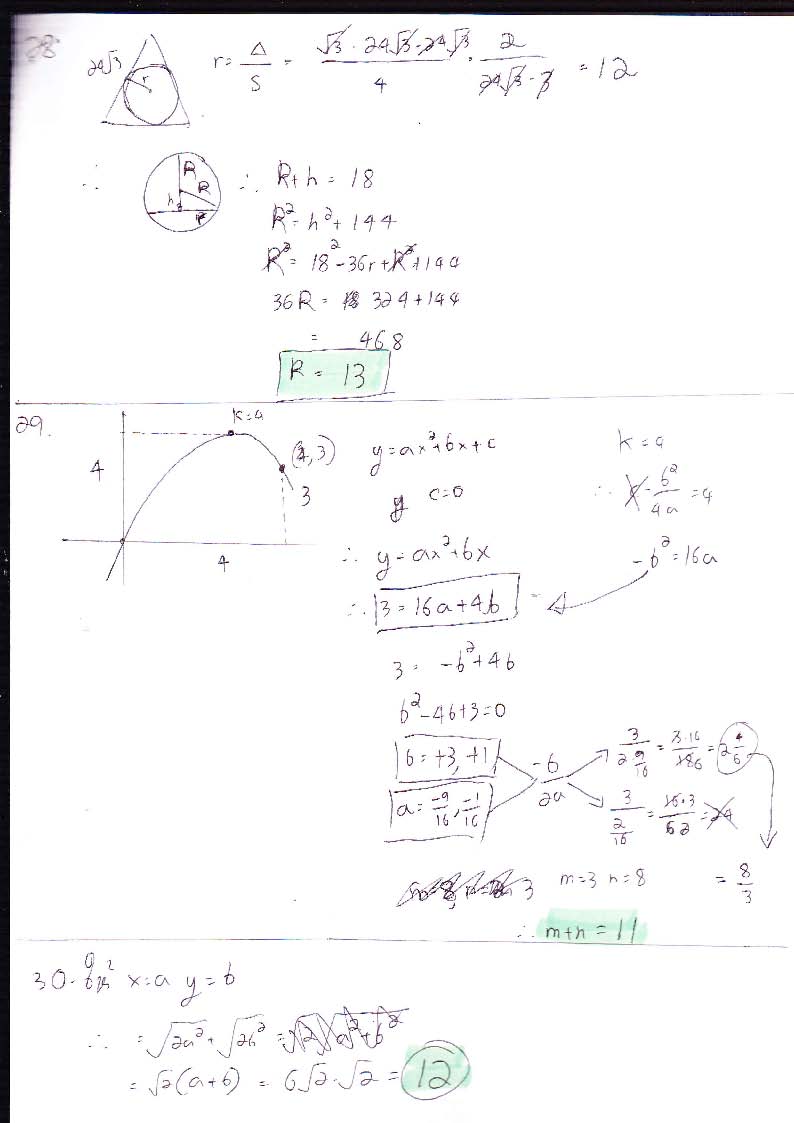 28
24√3
r
r = Δ/S = (√3 · 24√3 · 24√3)/4 · 2/(24√3 · 3) = 12
∴
R
R
h
r
∴ R + h = 18
R² = h² + 144
R² = 18² - 36r + R² + 144
36R = 324 + 144
= 468
R = 13
29.
k = 4
(4, 3)
3
4
4
y = ax² + bx + c
y c = 0
∴ y = ax² + bx
∴ 3 = 16a + 4b
k = 4
∴ -b²/4a = 4
-b² = 16a
3 = -b² + 4b
b² - 4b + 3 = 0
b = +3, +1
a = -9/16, -1/16
-b/2a
3/(2 9/16) = 3·16/18 6 = 2 4/6
3/(2/16) = 16·3/2 = 24
= 8/3
m = 3 n = 8
∴ m + n = 11
30. x = a y = b
∴ = √2a² + √2b² = √2 √a² + b²
= √2(a + b) = 6√2 · √2 = 12